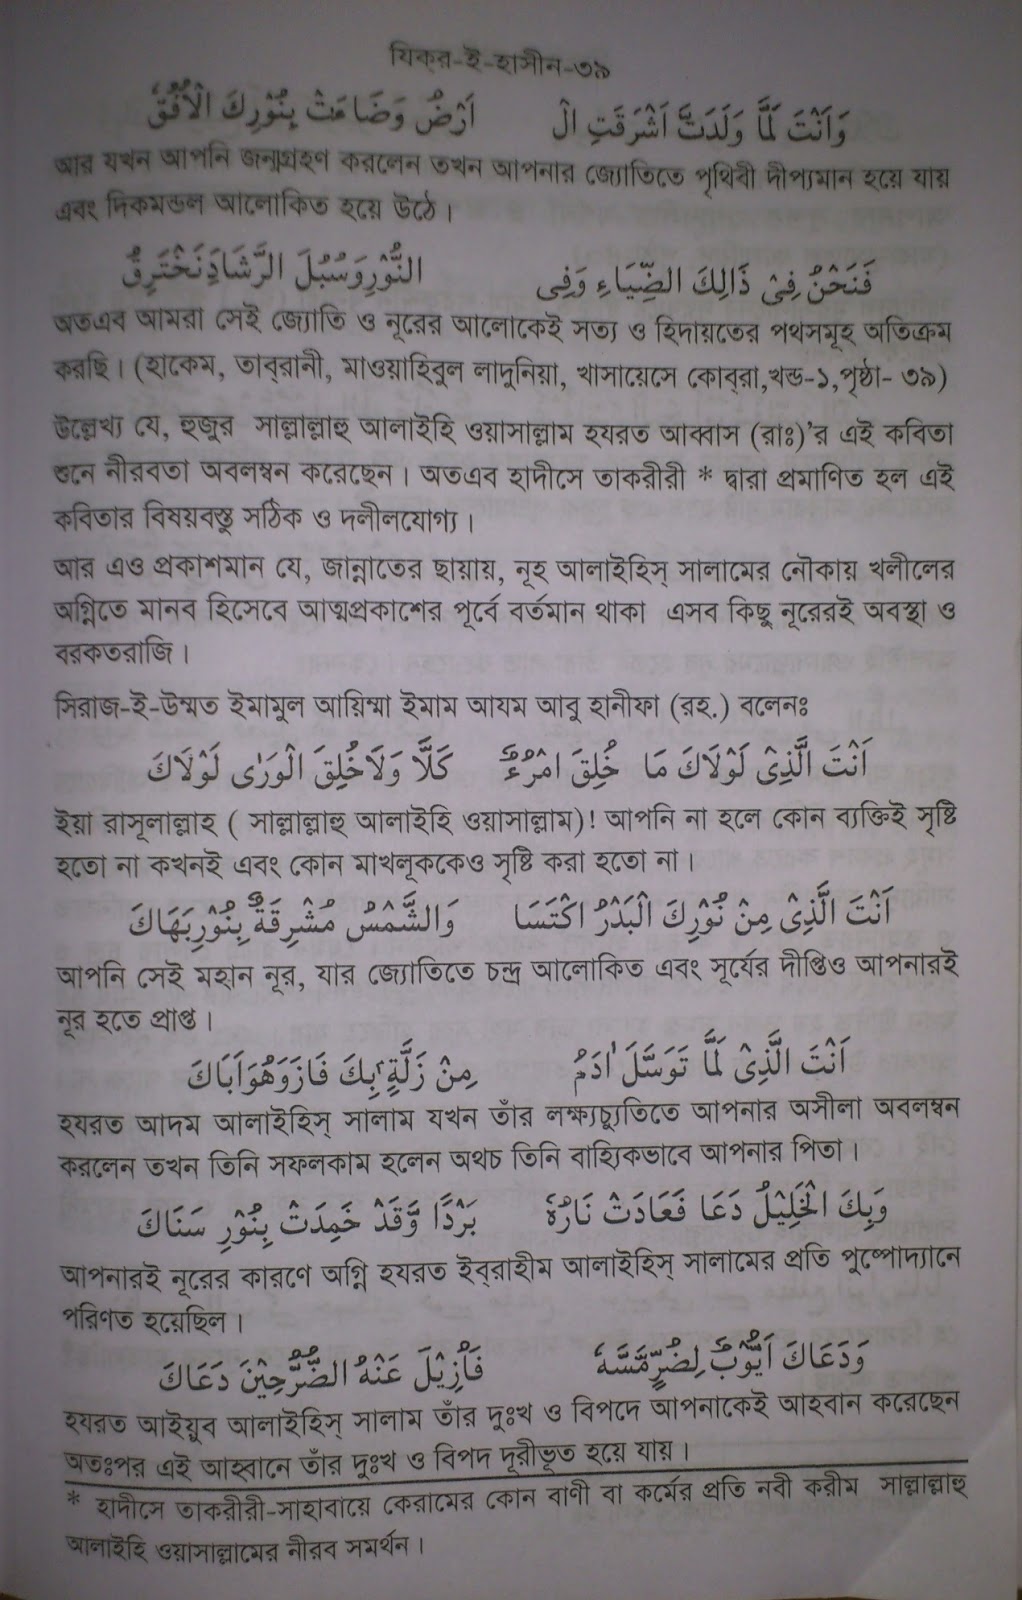 যিক্‌র-ই-হাসীন-৩৯
وَاَنْتَ لَمَّا وَلَدَتَّ اَشْرَقَتِ الْ اَرْضُ وَضَاءَتْ بِنُوْرِكَ الْاُفُقُ
আর যখন আপনি জন্মগ্রহণ করলেন তখন আপনার জ্যোতিতে পৃথিবী দীপ্যমান হয়ে যায়
এবং দিকমন্ডল আলোকিত হয়ে উঠে।
فَنَحْنُ فِىْ ذَالِكَ الضِّيَاءِ وَفِى النُّوْرِوَسُبُلَ الرَّشَادِنَخْتَرِقُ
অতএব আমরা সেই জ্যোতি ও নূরের আলোকেই সত্য ও হিদায়তের পথসমূহ অতিক্রম
করছি। (হাকেম, তাব্‌রানী, মাওয়াহিবুল লাদুনিয়া, খাসায়েসে কোব্‌রা,খন্ড-১,পৃষ্ঠা- ৩৯)
উল্লেখ্য যে, হুজুর সাল্লাল্লাহু আলাইহি ওয়াসাল্লাম হযরত আব্বাস (রাঃ)’র এই কবিতা
শুনে নীরবতা অবলম্বন করেছেন। অতএব হাদীসে তাকরীরী * দ্বারা প্রমাণিত হল এই
কবিতার বিষয়বস্তু সঠিক ও দলীলযোগ্য।
আর এও প্রকাশমান যে, জান্নাতের ছায়ায়, নূহ আলাইহিস্ সালামের নৌকায় খলীলের
অগ্নিতে মানব হিসেবে আত্মপ্রকাশের পূর্বে বর্তমান থাকা এসব কিছু নূরেরই অবস্থা ও
বরকতরাজি।
সিরাজ-ই-উম্মত ইমামুল আয়িম্মা ইমাম আযম আবু হানীফা (রহ.) বলেনঃ
اَنْتَ الَّذِىْ لَوْلَاكَ مَا خُلِقَ امْرُءٌ كَلَّا وَلَاخُلِقَ الْوَرٰى لَوْلَاكَ
ইয়া রাসূলাল্লাহ ( সাল্লাল্লাহু আলাইহি ওয়াসাল্লাম)! আপনি না হলে কোন ব্যক্তিই সৃষ্টি
হতো না কখনই এবং কোন মাখলূককেও সৃষ্টি করা হতো না।
اَنْتَ الَّذِىْ مِنْ نُوْرِكَ الْبَدْرُ اكْتَسَا وَالشَّمْسُ مُشْرِقَةٌ بِنُوْرِبَهَاكَ
আপনি সেই মহান নূর, যার জ্যোতিতে চন্দ্র আলোকিত এবং সূর্যের দীপ্তিও আপনারই
নূর হতে প্রাপ্ত।
اَنْتَ الَّذِىْ لَمَّا تَوَسَّلَ اٰدَمُ مِنْ زَلَّةٍ بِكَ فَازَوَهُوَاَبَاكَ
হযরত আদম আলাইহিস্ সালাম যখন তাঁর লক্ষ্যচ্যুতিতে আপনার অসীলা অবলম্বন
করলেন তখন তিনি সফলকাম হলেন অথচ তিনি বাহ্যিকভাবে আপনার পিতা।
وَبِكَ الْخَلِيْلُ دَعَا فَعَادَتْ نَارُهٗ بَرْدًا وَّقَدْ خَمِدَتْ بِنُوْرِ سَنَاكَ
আপনারই নূরের কারণে অগ্নি হযরত ইব্‌রাহীম আলাইহিস্ সালামের প্রতি পুষ্পোদ্যানে
পরিণত হয়েছিল।
وَدَعَاكَ اَيُّوْبُ لِضُرٍّمَسَّهٗ فَاُزِيْلَ عَنْهُ الضُّرُّحِيْنَ دَعَاكَ
হযরত আইয়ুব আলাইহিস্ সালাম তাঁর দুঃখ ও বিপদে আপনাকেই আহবান করেছেন
অতঃপর এই আহ্বানে তাঁর দুঃখ ও বিপদ দূরীভূত হয়ে যায়।
* হাদীসে তাকরীরী-সাহাবায়ে কেরামের কোন বাণী বা কর্মের প্রতি নবী করীম সাল্লাল্লাহু
আলাইহি ওয়াসাল্লামের নীরব সমর্থন।